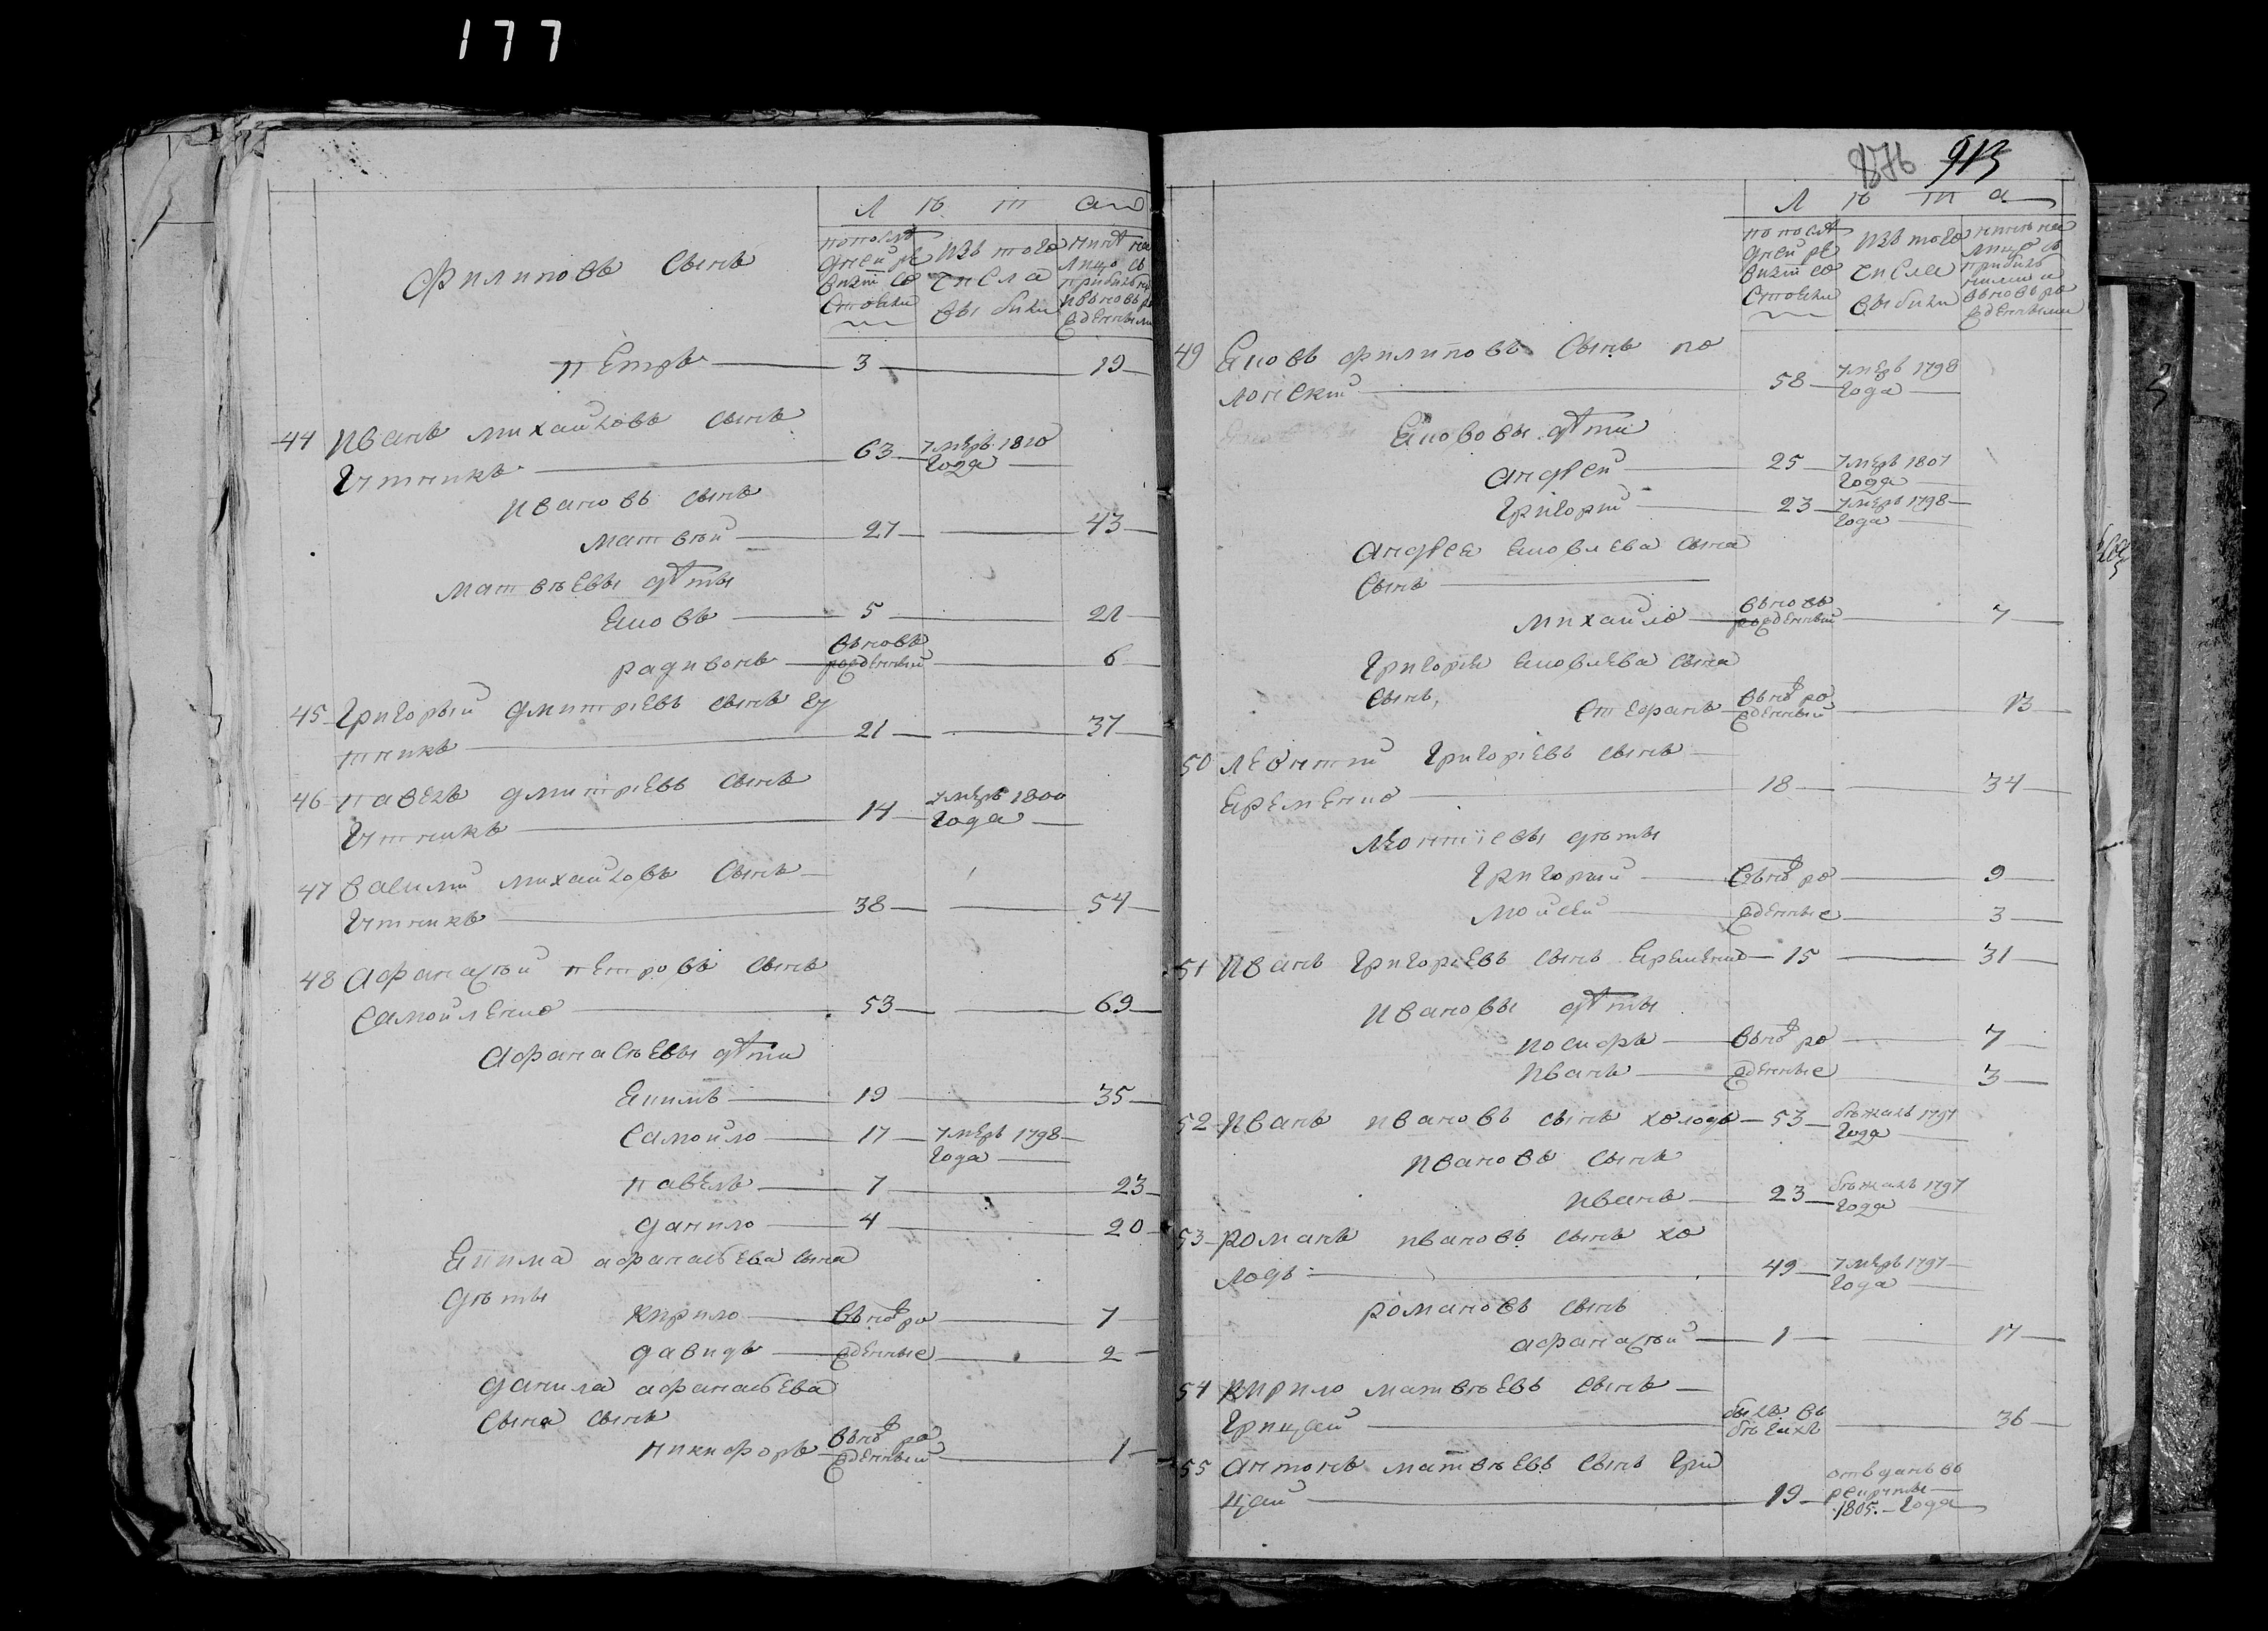 177
Лѣта
по послѣ дней ре визiи со стояли
изъ того числа выбыли
нынѣ на лицо съ прибылы ми и вновь ро жденными
Филиповъ сынъ
Петръ — 3 — 19
44 Иванъ михайловъ сынъ
63 — умеръ 1810 года
Ивановъ сынъ
Матвѣй — 27 — 43
Матвѣевы дѣты
Яковъ — 5 — 21
Радивонъ — вновь рожденный — 6
45 Григорый дмитрiевъ сынъ
21 — 37
46 Павелъ дмитрiевъ сынъ
14 — умеръ 1800 года
47 Василiй михайловъ сынъ
38 — 54
48 Афанасѣй петровъ сынъ
Самойленко — 53 — 69
Афанасѣевы дѣти
Якимъ — 19 — 35
Самойло — 17 — умеръ 1798 года
Павелъ — 7 — 23
Данило — 4 — 20
Якима афанасьева сына
дѣты
Кирило — вновь ро — 7
Давидъ — жденные — 2
Данила афанасьева
сына сынъ
Никифоръ — вновь ро жденный — 1
876 913
Лѣта
по послѣ дней ре визiи со стояли
изъ того числа выбыли
нынѣ на лицо съ прибылъ ными и вновь ро жденными
49 Яковъ филиповъ сынъ по
лонскiй — 58 — умеръ 1798 года
Якововы дѣти
Андрей — 25 — умеръ 1807 года
Григорiй — 23 — умеръ 1798 года
Андрея яковлева сына
сынъ
Михайло — вновь рожденный — 7
Григорiя яковлева сына
сынъ,
Стефанъ — вновь ро жденный — 13
50 Леонтiй григорiевъ сынъ
Яременко — 18 — 34
Леонтiевы дѣты
Григорiй — вновь ро — 9
Мойсей — жденные — 3
51 Иванъ григорiевъ сынъ яременко — 15 — 31
Ивановы дѣты
Иосифъ — вновь ро — 7
Иванъ — жденные — 3
52 Иванъ ивановъ сынъ холодъ — 53 — бѣжалъ 1797 года
Ивановъ сынъ
Иванъ — 23 — бѣжалъ 1797 года
53 Романъ ивановъ сынъ хо
лодъ — 49 — умеръ 1797 года
Романовъ сынъ
Афанасѣй — 1 — 17
54 Кирило матвѣевъ сынъ
Грицай — былъ въ бѣгахъ — 36
55 Антонъ матвѣевъ сынъ гри
цай — 19 — отданъ въ рекруты 1805. года